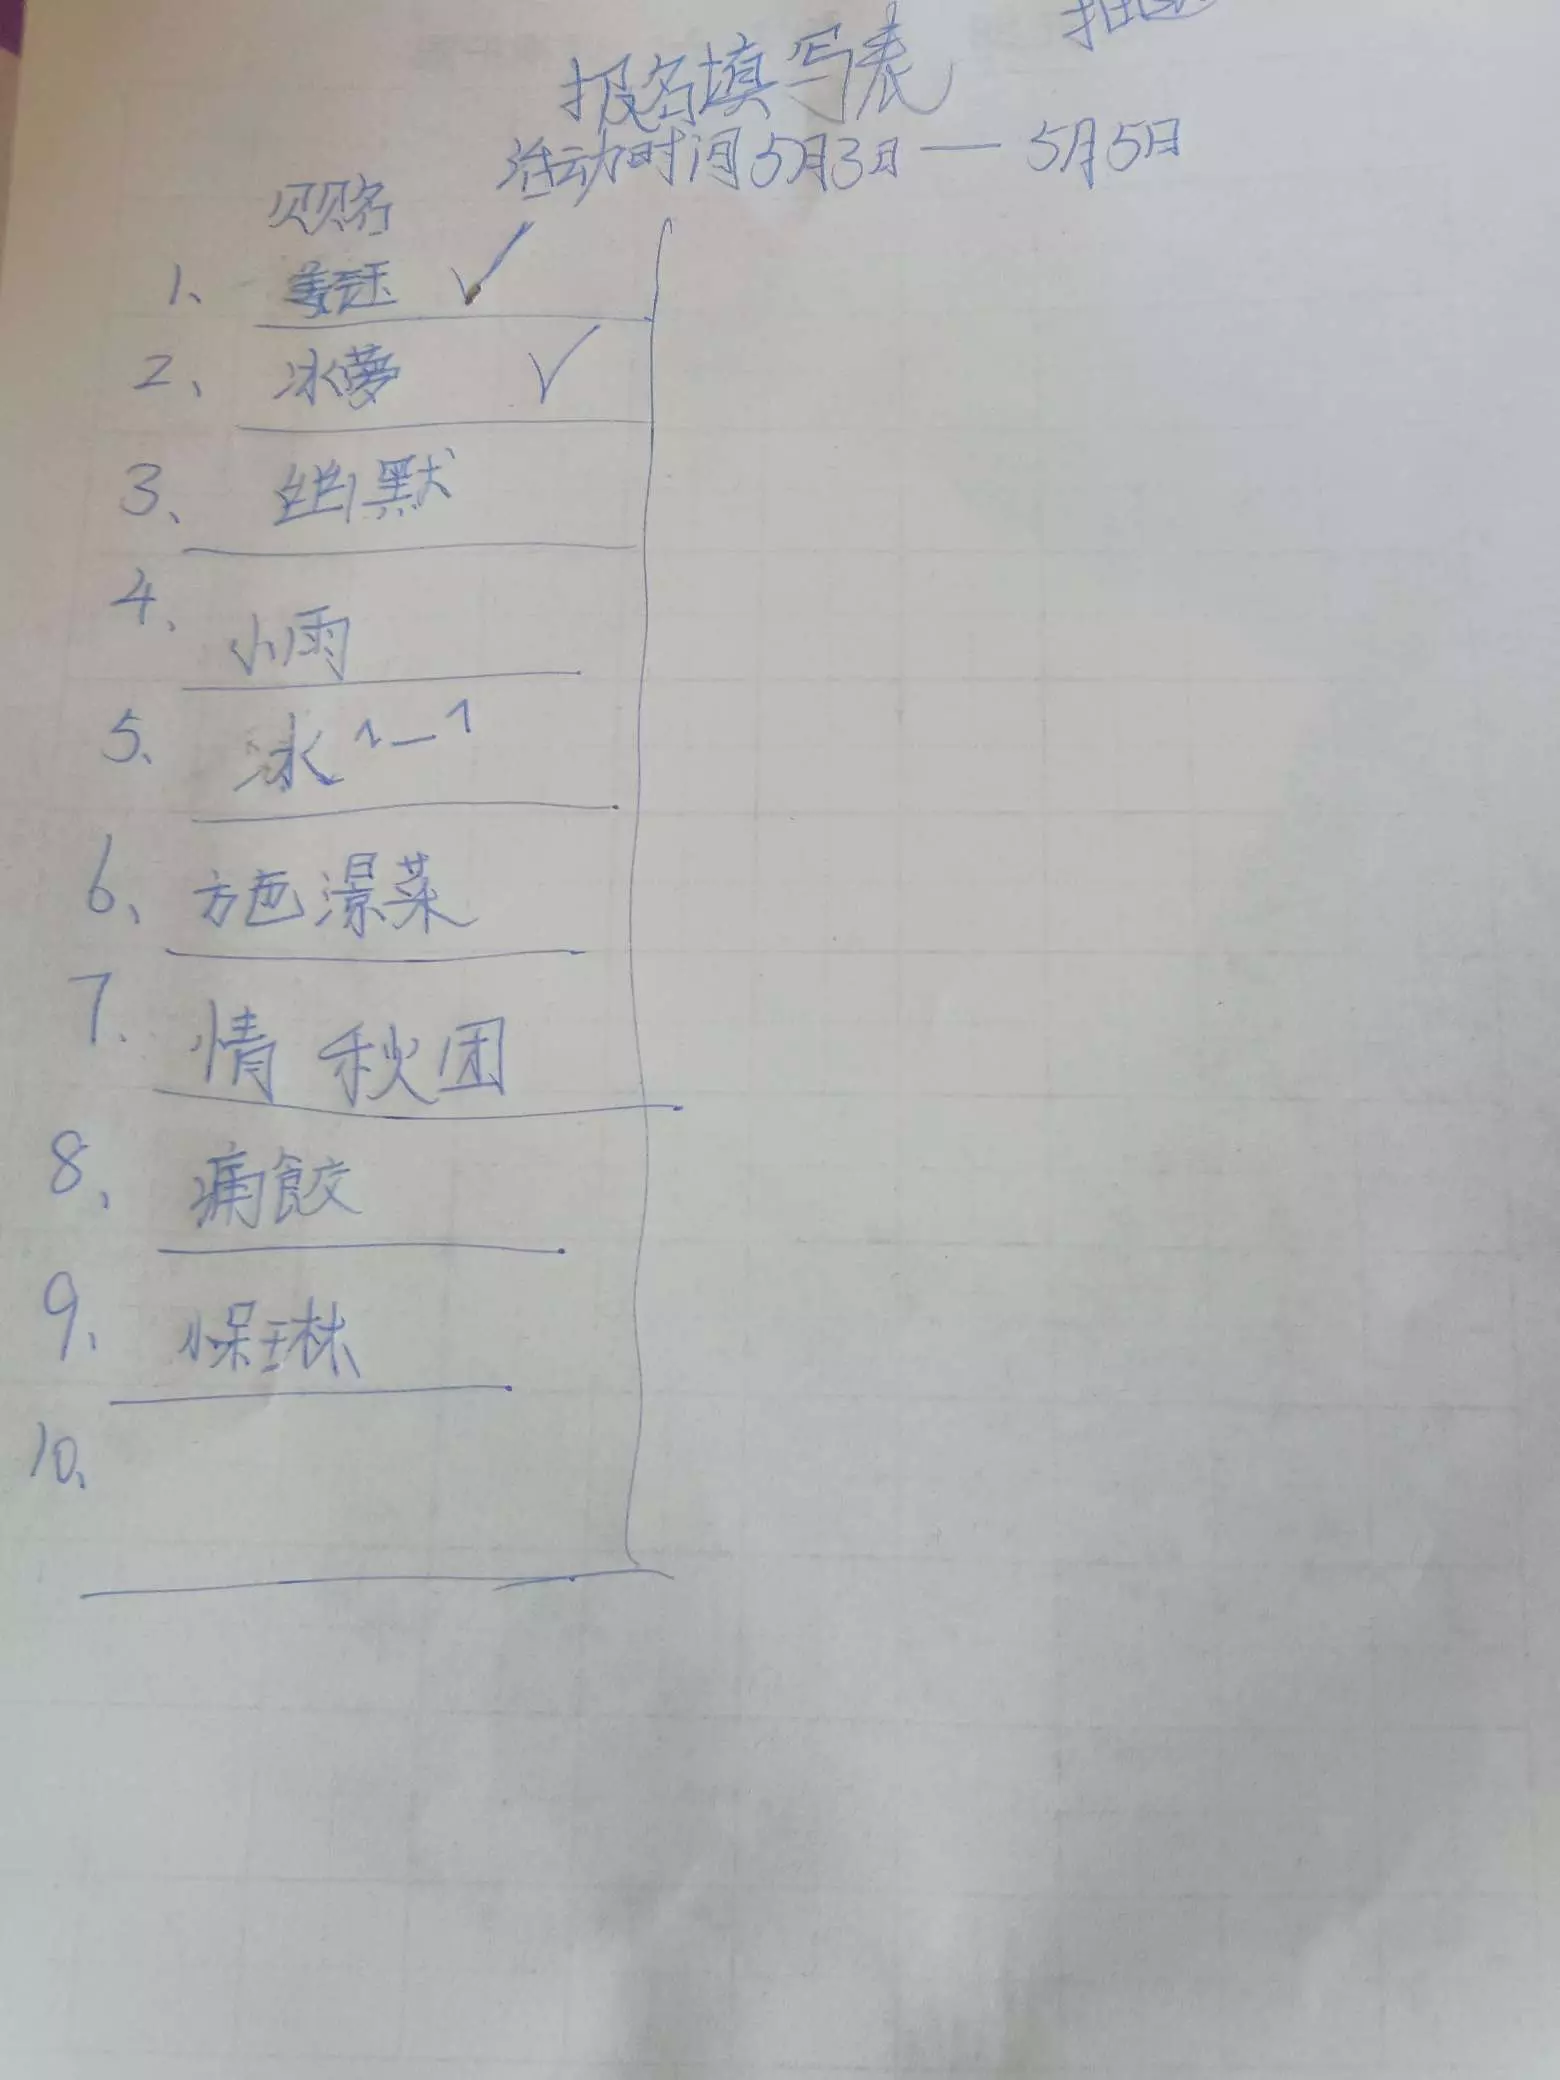 报名填写表
活动时间5月3日 — 5月5日
1、
2、冰萝 ✓
3、幽默
4、小雨
5、冰^—^
6、施澋菜
7、情 秋团
8、痛餃
9、保琳
10、